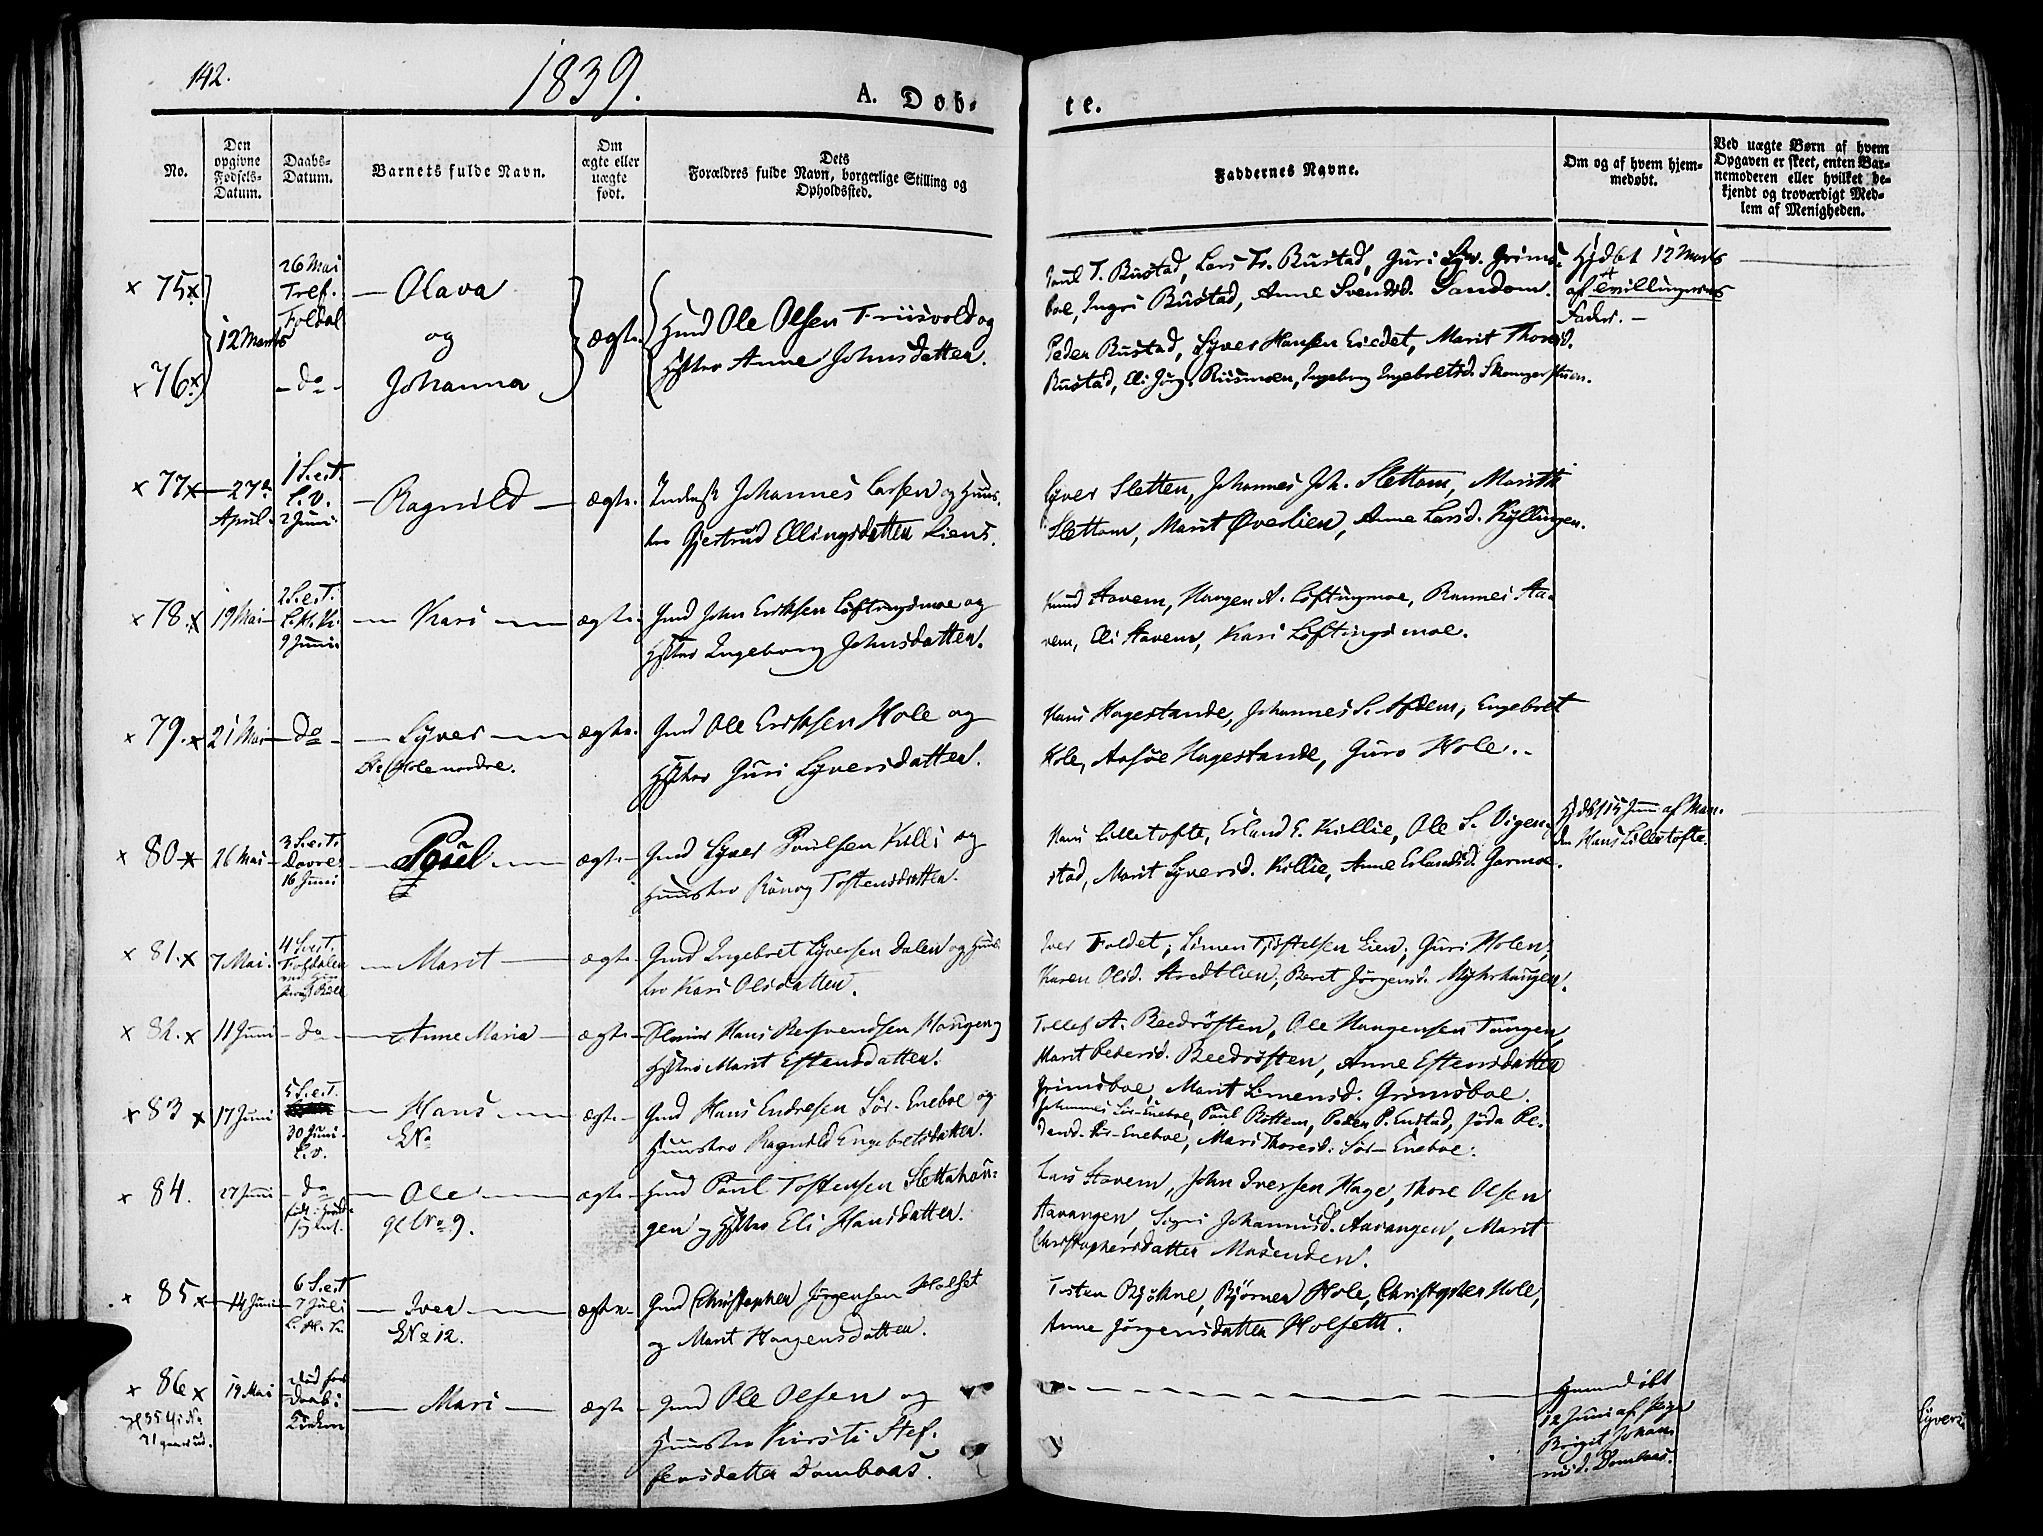 142.
1839.
A. Døb-
te.
No.
Den
opgivne
Fødsels-
Datum.
Daabs-
Datum.
Barnets fulde Navn.
Om
ægte eller
uægte
født.
Dets
Forældres fulde Navn, borgerlige Stilling og
Opholdssted.
Faddernes Navne.
Om og af hvem hjem-
medøbt.
Ved uægte Børn af hvem
Opgaven er skeet, enten Bar-
nemoderen eller hvilket be-
kjendt og troværdigt Med-
lem af Menigheden.
× 75×
12 Marts
26 Mai
Tref.
Foldal
Olava
og
× 76×
do
Johanna
ægte
Gmd Ole Olsen Friisvold og
Hstro Anne Johnsdatter.
Poul T. Rustad, Lars Tr. Rustad, Guri Syv. Grims-
boe, Ingri Rustad, Anne Svendsd. Sandom.
Peder Rustad, Syver Hansen Eiedet, Marit Thoresd.
Rustad, Eli Jørg. Riismoen, Ingeborg Ingebretsd. Skamgerstuen.
Hjdbt 12 Marts
af tvillingernes
Fader.
× 77×
27de
April
1 S.e.t.
L.V.
2 Juni
Ragnild
ægte
Johannes Larsen og Huus-
tro Gjertrud Ellingsdatter Liens.
Syver Sletten, Johannes Joh. Slettom, Marith
Slettom, Marit Øverlien, Anne Larsd. Kyllingen.
× 78.×
19 Mai
2 S.e.T.
L.H.K.
9 Juni
Kari
ægte
Gmd John Eriksen Løftingsmoe og
Hstro Ingeborg Johnsdatter.
Knud Stavem, Haagen A. Løftingmoe, Rannei Sta-
vem, Eli Stavem, Kari Løftingsmoe.
× 79.×
21 Mai
do
Syver
Hole nordre.
ægte
Gmd Ole Eriksen Hole og
Hstro Guri Syversdatter.
Hans Hagestande, Johannes S. Ofdem, Engebret
Hole, Hagestande, Guro Hole.
× 80×
26 Mai
3 S.e.t.
Dovre
16 Juni
Poul
ægte
Gmd Syver Poulsen Killi og
Huustro Rønog Tostensdatter.
Hans Lilletofte, Erland E. Killie, Ole S. Vigen-
stad, Marit Syversd. Killie, Anne Erlandsd. Garmoe.
Hjdbt 15 Juni af Man-
den Hans Lilletofte.
× 81.×
7 Mai
4 S.e.t.
Foldalen
Marit
ægte
Gmd Ingebret Syversen Dalen og Huus-
tro Kari Olsdatter.
Iver Foldet, Simen Tjøstelsen Lien, Guri Holen,
Karen Olsd. Stredtlien, Beret Jørgensd. Myhrhaugen.
× 82.×
11 Juni
do
Anne Maria
ægte
Hans Bersvendsen Haugen og
Hstro Marit Estensdatter.
Tollef A. Breedrøsten, Ole Haagensen Tangen,
Marit Pedersd. Breedrøsten, Anne Estensdatter
Grimsboe, Marit Simensd. Grimsboe.
× 83 ×
17 Juni
5 S.e.t.
30 Juni
L.V.
Hans
ægte
Gmd Hans Endresen Sør-Eneboe og
Huustro Ragnild Engebretsdatter.
Johannes Sør-Eneboe, Poul Bottem, Peder P. Enstad, Jøda Pe-
dersd. Sør-Eneboe, Mari Thoresd. Sør-Eneboe.
× 84.
27 Juni
do
Ole
No 9.
ægte
Gmd Poul Tostensen Slettehau-
gen og Hstro Eli Hansdatter.
Lars Stavem, John Iversen Hage, Thore Olsen
Aavangen, Sigri Johannesd. Aavangen, Marit
Christophersdatter Mosenden.
× 85×
14 Juni
6 S.e.t
7 Juli
L.H.K.
Iver
No 12.
ægte
Gmd Christopher Jørgensen Holset
og Marit Haagensdatter.
Tosten Bjøkne, Bjørner Hole, Christopher Hole,
Anne Jørgensdatter Holseth.
× 86×
19 Mai
død før
Daab i
Kirken
Mari
ægte
Gmd Ole Olsen og
Huustro Kirsti Stef-
fensdatter Dombaas.
Hjemmedøbt
12 Juni af Pige
Brigit Johan-
nesd. Dombaas.
Syvers